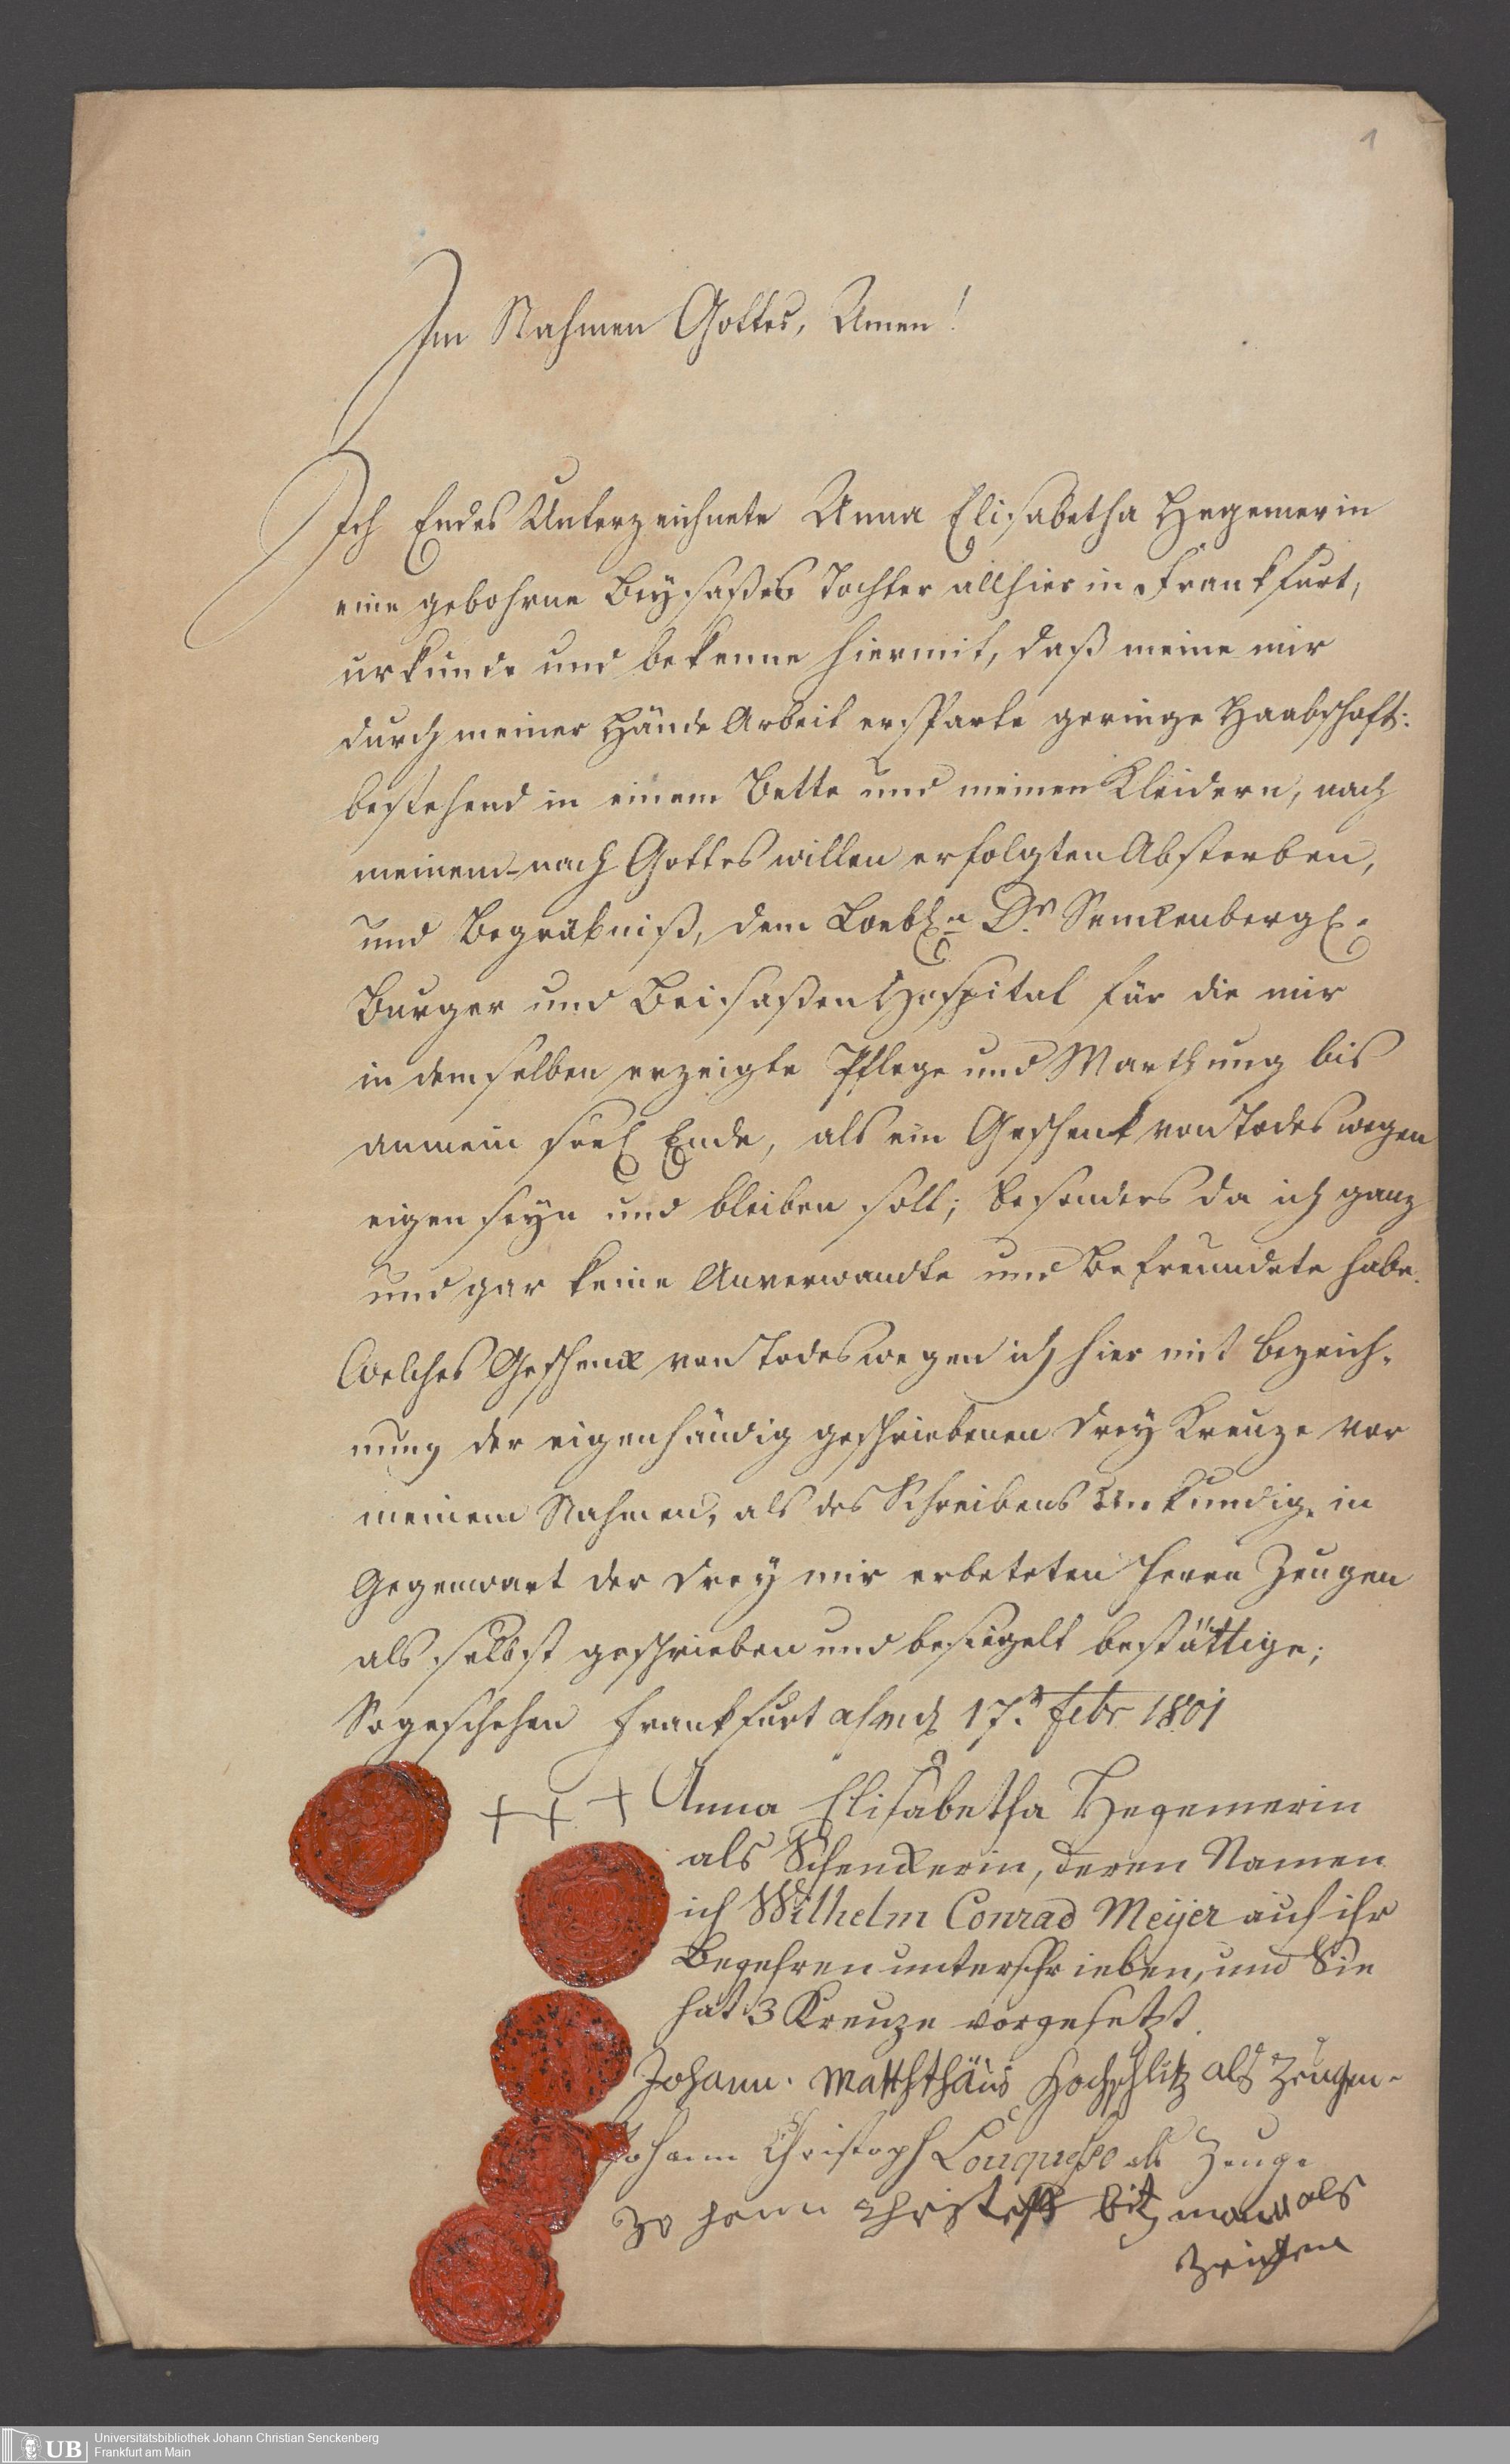 1
Im Nahmen Gottes, Amen!
Ich Endes Unterzeichnete Anna Elisabetha Hegemerin
eine gebohrne Beysaßes Tochter allhier in Frankfurt,
urkunde und bekenne hiermit, daß meine mir
durch meiner Hände Arbeit ersparte geringe Haabschaft:
bestehend in einem Bette und meinen Kleidern, nach
meinem nach Gottes willen erfolgten Absterben,
und Begräbniß, dem Loebl. Dr. Senckenbergl.
Burger und Beisaßen Hospital für die mir
in demselben erzeigte Pflege und Warthung bis
an mein Ende, als ein Geschenk von Todes wegen
eigen seyn und bleiben soll; besonders da ich ganz
und gar keine Anverwandte und Befreundete habe.
Welches Geschenck von Todes wegen ich hier mit Bezeich-
nung der eigenhändig geschriebenen drey Kreuze vor
meinem Nahmen, als des Schreibens Unkundig, in
Gegenwart der drey mir erbeteten Herrn Zeugen
als selbst geschrieben und besiegelt bestättige;
So geschehen Frankfurt 17. Febr 1801
+ + + Anna Elisabetha Hegemerin
als Schenckerin, deren Namen
ich Wilhelm Conrad Meijer auf ihr
Begehren unterschrieben, und Sie
hat 3 Kreuze vorgesetzt.
Johann Matthäus als Zeugen
Johann Christoph als Zeuge
Johann als
Zeugen
Universitätsbibliothek Johann Christian Senckenberg
UB
Frankfurt am Main